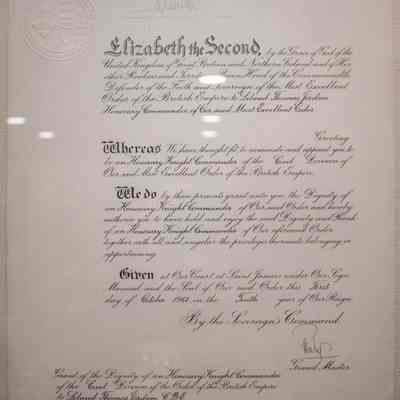 Elizabeth the Second, by the Grace of God of the
United Kingdom of Great Britain and Northern Ireland and of Her
other Realms and Territories Queen, Head of the Commonwealth,
Defender of the Faith and Sovereign of the Most Excellent
Order of the British Empire to Leland Thomas
Honorary Commander of Our said Most Excellent Order
Greeting
Whereas We have thought fit to nominate and appoint you to
be an Honorary Knight Commander of the Civil Division of
Our said Most Excellent Order of the British Empire
We do by these presents grant unto you the Dignity of
an Honorary Knight Commander of Our said Order and hereby
authorise you to have hold and enjoy the said Dignity and Rank
of an Honorary Knight Commander of Our aforesaid Order
together with all and singular the privileges thereunto belonging or
appertaining.
Given at Our Court at Saint James's under Our Sign
Manual and the Seal of Our said Order this First
day of October 1961 in the Tenth year of Our Reign.
By the Sovereign's Command.
Grand Master
Grant of the Dignity of an Honorary Knight Commander
of the Civil Division of the Order of the British Empire
to Leland Thomas C.B.E.